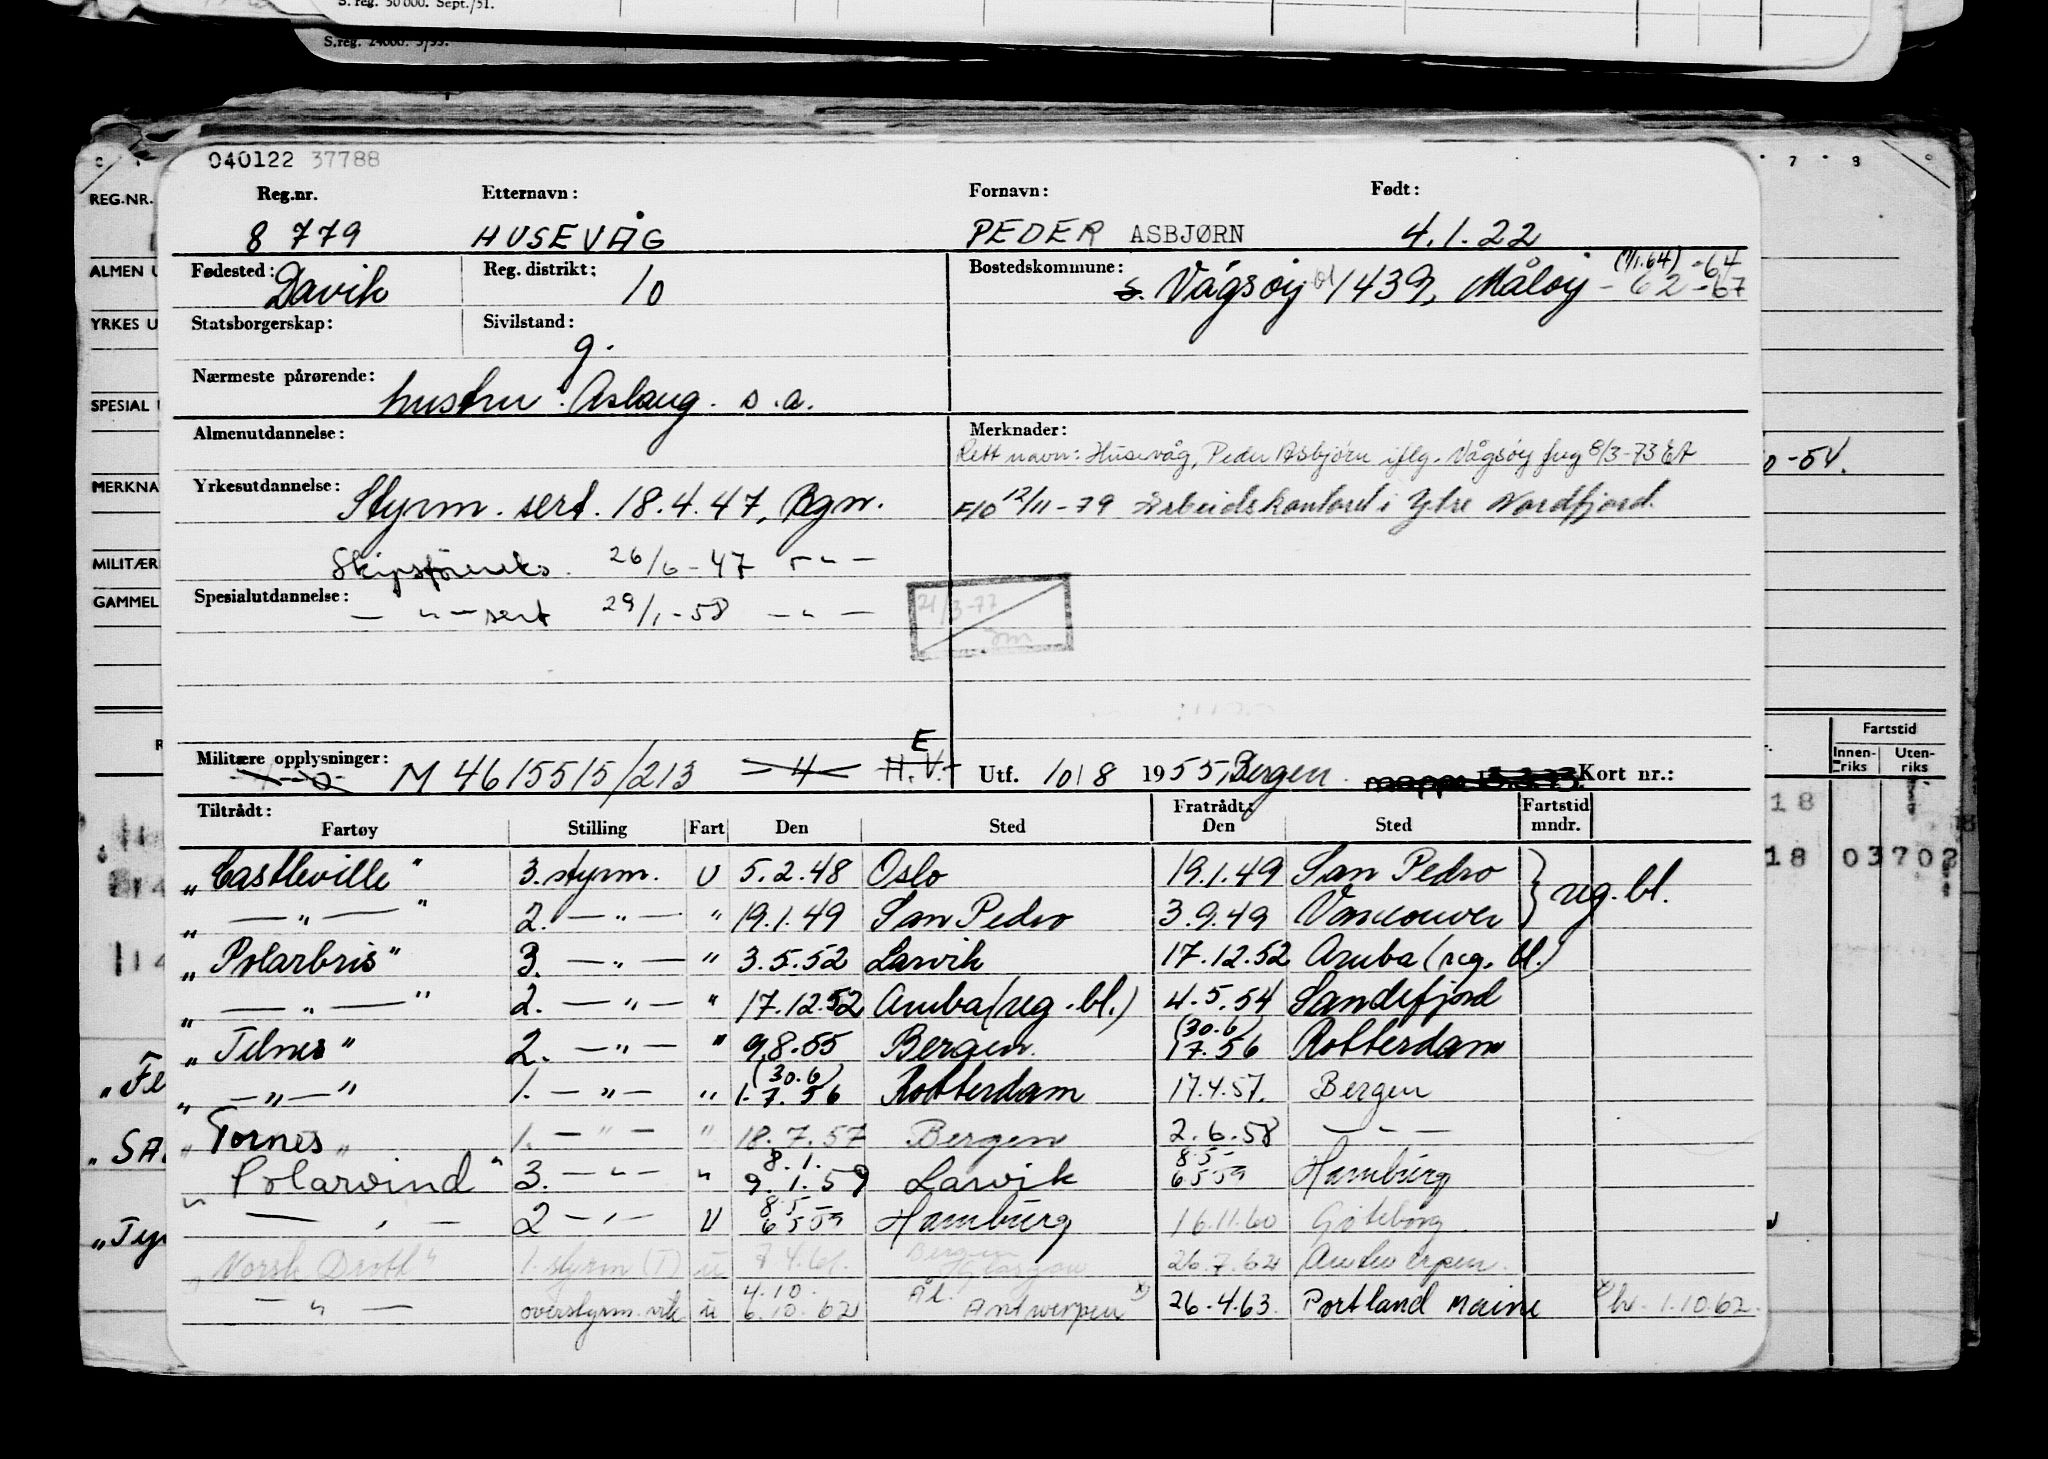 S. reg. 30 000. Sept./51.
S.reg. 24000. 3/53.
040122 37788
Reg.nr. Etternavn: Fornavn: Født:
8 779 HUSEVÅG PEDER ASBJØRN 4.1.22
REG.NR.
Fødested: Davik Reg. distrikt: 10 Bostedskommune: S. Vågsøy 1439, Måløy - 62 - 67
(1/1.64) -64
ALMEN U
YRKES U
Statsborgerskap: Sivilstand: g.
Nærmeste pårørende: hustru: Aslaug. s.a.
SPESIAL
Almenutdannelse: Merknader:
Rett navn: Husevåg, Peder Asbjørn iflg. Vågsøy fng 8/3-73 EA
-54.
MERKNA
Yrkesutdannelse: Styrm. sert. 18.4.47, Bgn. F10 12/11-79 Arbeidskontoret i Ytre Nordfjord.
MILITÆR
Skipsförereks. 26/6-47 -"-
GAMMEL
Spesialutdannelse: - " - sert 29/1-58 - " -
21/3-77
E
Militære opplysninger: M 4615515/213 4 H.V. Utf. 10/8 1955, Bergen. Kort nr.:
Fartstid
Innen-riks Uten-riks
Tiltrådt: Fratrådt: Fartstid mndr.
Fartøy Stilling Fart Den Sted Den Sted
18
18 03702
„Castleville" 3. styrm. U 5.2.48 Oslo 19.1.49 San Pedro } reg. bl.
„ — " — " 2. — " — " 19.1.49 San Pedro 3.9.49 Vancouver
„Polarbris" 3. — " — " 3.5.52 Larvik 17.12.52 Aruba (reg. bl.)
„ — " — " 2. — " — " 17.12.52 Aruba (reg. bl.) 4.5.54 Sandefjord
„Telnes" 2. — " — " 9.8.55 Bergen. (30.6) 1 7.56 Rotterdam
„Fl
„ — " — " 1. — " — " (30.6) 1.7.56 Rotterdam 17.4.57. Bergen
„SA
„Tornes" 1. — " — " 18.7.57 Bergen 2.6.58 — " —
„Polarvind" 3. — " — " 8.1. 9.1.59 Larvik 8.5 6559 Hamburg
„Ty
— " — 2 — " — U 8.5 6559 Hamburg 16.11.60 Göteborg
„Norsk Drott" 1. styrm (T) u 7.4.61. Bergen Glasgow 26.7.62 Antwerpen.
— " — overstyrm. vik u 4.10. 6.10.62 Ål. Antwerpen x) 26.4.63. Portland Maine x) hr. 1.10.62.